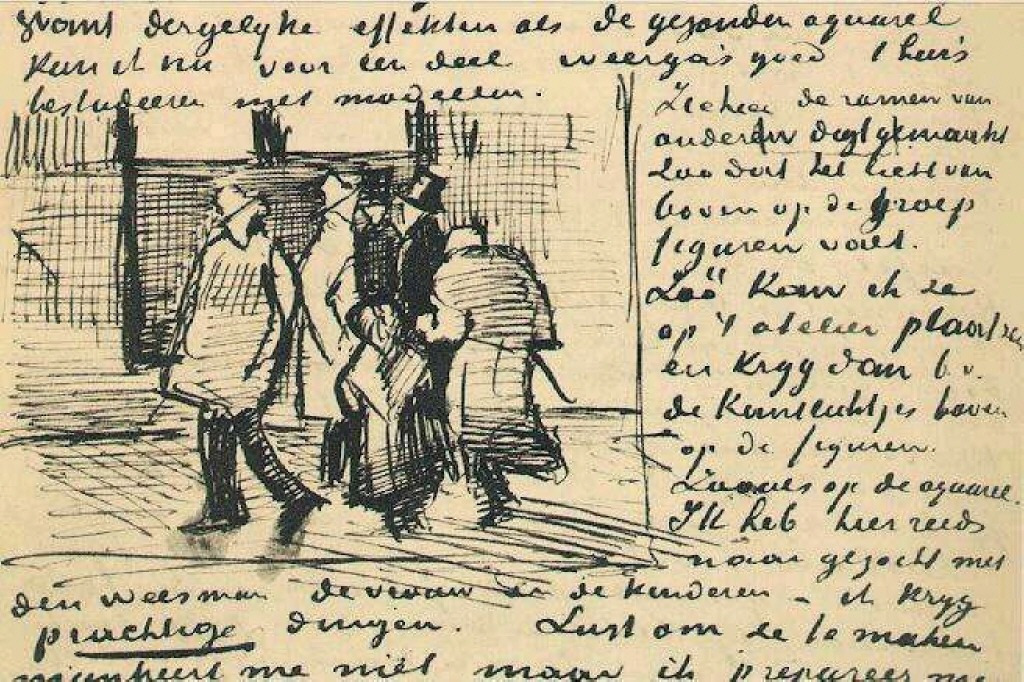 dergelyke effekten als de gezonden aquarel
Kan ik nu voor een deel weerga's goed t huis
bestudeeren met modellen.
de ramen van
anderen digt gemaakt
Zoo dat het licht van
boven op de groep
figuren valt.
Zoo Kan ik ze
op 't atelier plaatsen
en Kryg dan b.v.
de Kantlichtjes boven
op de figuren.
Zooals op de aquarel.
Ik heb hier reeds
naar gezocht met
den weesman de vrouw en de Kinderen – ik Kryg
prachtige dingen. Lust om ze te maken
mankeert me niet maar ik prepareer me